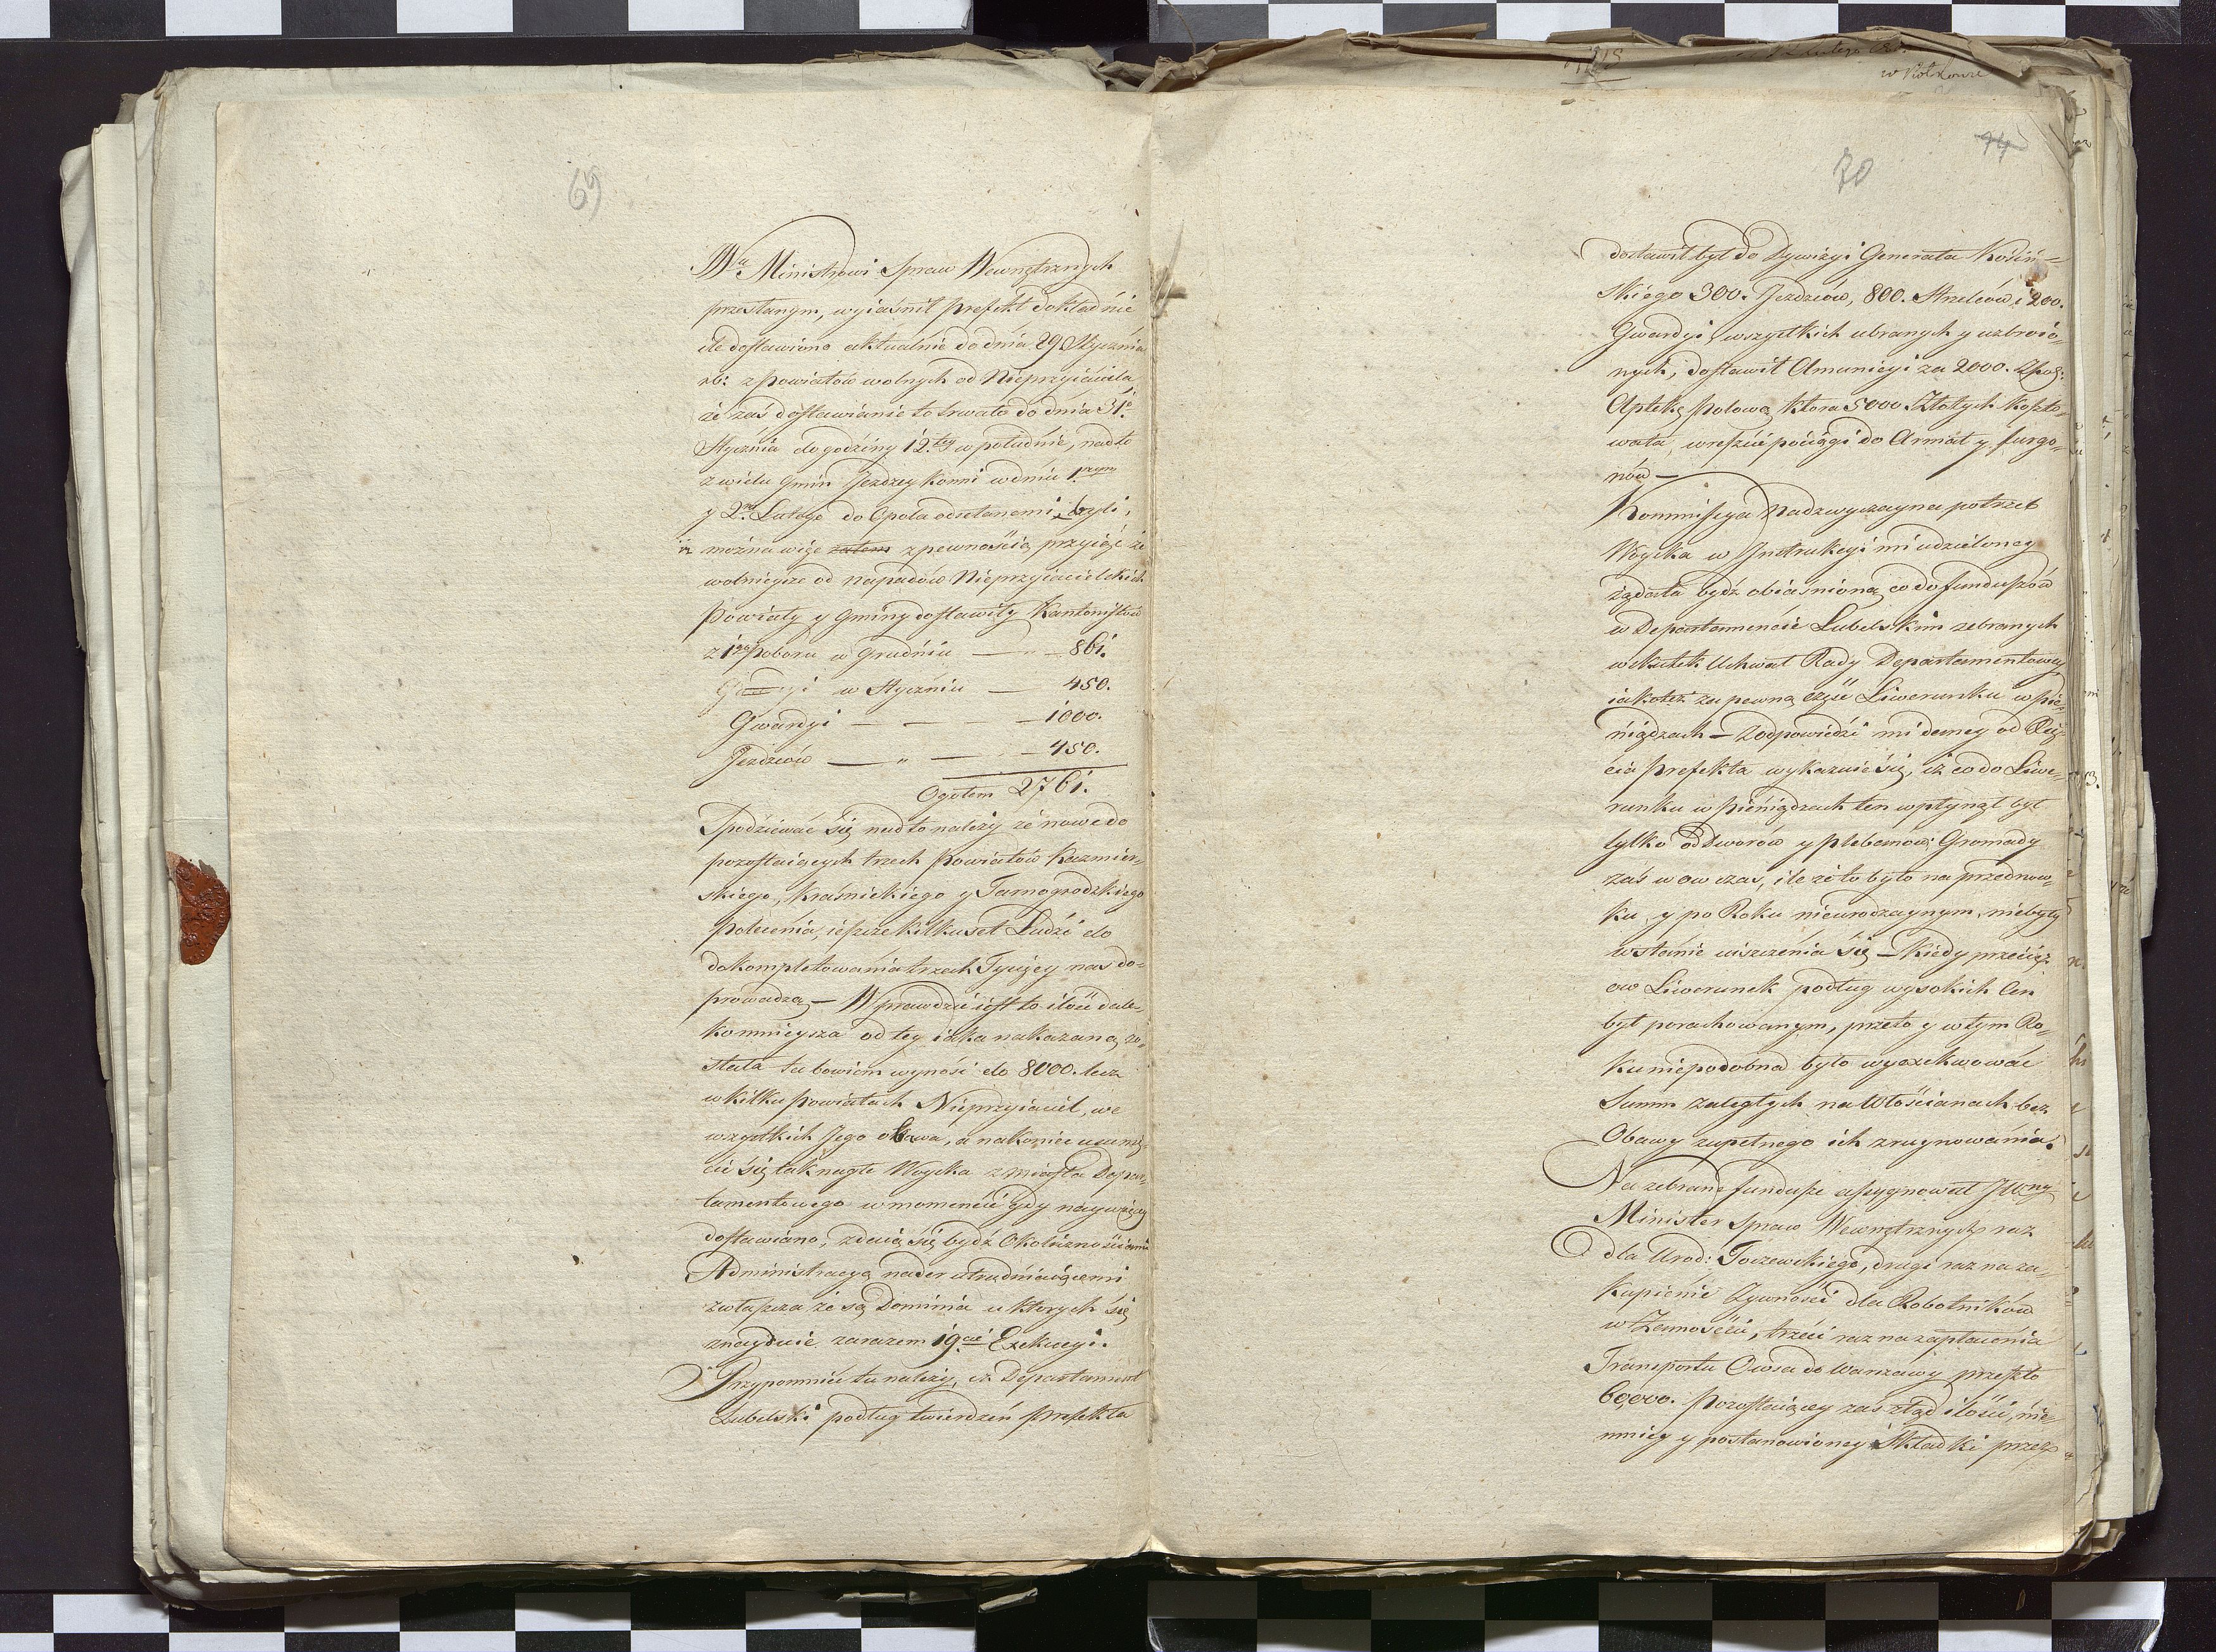 69
JWu Ministrowi Spraw Wewnętrznych
przesłanym, wyiaśnił prefekt dokładnie
ile dostawiono aktualnie do dnia 29 Stycznia
rb: z Powiatów wolnych od Nieprzyiaciela
że zaś dostawianie to trwało do dnia 31º
Stycznia do godziny 12.tey w południe, nadto
z wielu Gmin Jezdzcy konni w dniu 1.szym
y 2. Lutego do Opola odsełanemi byli,
można więc zatem z pewnością przyiąć że
wolnieysze od napadów Nieprzyiacielskich
Powiaty y Gminy dostawiły Kantonistów
z 1go Poboru w Grudniu — „ — 861.
w Styczniu — 450.
Gwardyi — — — 1000.
Jezdzców — „ — — 450.
Ogołem 2761.
Spodziewać się nadto należy że nowe do
pozostaiących trzech Powiatów Kazmier=
skiego, Kraśnickiego y Tarnogrodzkiego
Polecenia, ieszcze kilkuset Ludzi do
dokompletowania trzech Tysięcy nas do=
prowadzą — Wprawdzie iest to ilość dale=
ko mnieysza od tey iaka nakazaną zo=
stała ta bowiem wynosi do 8000. lecz
w kilku Powiatach Nieprzyiaciel, we
wszystkich Jego obawa, a nakoniec usunię=
cie się tak nagłe Woyska z miasta Depar=
tamentowego w momencie gdy naywięcey
dostawiano, zdaią się bydź Okolicznościami
Administracyą nader utrudniaiącemi
zwłaszcza że są Dominia u których się
znayduie zarazem 19.cie Exekucyi.
Przypomnieć tu należy, iż Departament
Lubelski podług twierdzeń Prefekta
74
70
dostawił był do Dywizyi Generała Kosiń=
skiego 300. Jezdzców, 800. Strzelców i 200.
Gwardyi wszystkich ubranych y uzbroio=
nych, dostawił Amunicyi za 2000. Zpol:
Aptekę polową która 5000 Złotych koszto=
wała, wreszcie pociągi do Armat y furgo=
nów —
Kommissya Nadzwyczayna potrzeb
Woyska w Instrukcyi mi udzieloney
żądała bydź obiaśnioną co do funduszów
w Departamencie Lubelskim zebranych
wskutek Uchwał Rady Departamentowey
iakoteż za pewną część Liwerunku w pie=
niądzach — Zodpowiedzi mi daney od
cia Prefekta wykazuie się, iż co do Liwe=
runku w pieniądzach ten wpłynął był
tylko od Dworów y plebanów: Gromady
zaś w ow czas, ile że to było na przednow=
ku, y po Roku nieurodzaynym, niebyły
wstanie uiszczenia się — Kiedy przecięż
ow Liwerunek podług wysokich Cen
był porachowanym, przeto y w tym Ro=
ku niepodobna było wyexekwować
Summ zaległych na Włościanach bez
Obawy zupełnego ich zruynowania.
Na zebrane fundusze assygnował JWny
Minister Spraw Wewnętrznych raz
dla Urod: Toczewskiego, drugi raz na za=
kupienie Żywności dla Robotników
w Zamościu, trzeci raz na zapłacenia
Transportu Owsa do Warszawy przeszło
60,000. Pozostaiącey zaś ztąd ilości, nie=
mniey y postanowioney Składki przez